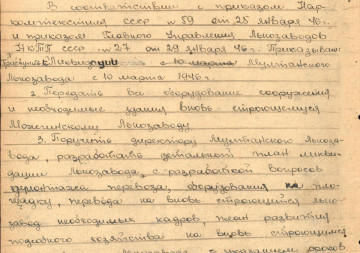 В соответствии с приказом Нар-
комтекстиля СССР №59 от 25 января 46 г.
и приказом Главного Управления Льнозаводов
НКТП СССР №27 от 29 января 46 г. Приказываю:
Приступить к Ликвидации с 10 марта Мултанского
Льнозавода с 10 марта 1946 г.
2. Передать все оборудование сооружения
и необходимые здания вновь-строющемуся
Можгинскому Льнозаводу
3. Поручить директору Мултанского Льноза-
вода, разработать детальный план ликви-
дации Льнозавода, с разработкой вопросов
демонтажа перевоза, оборудования на пло-
щадку, перевода на вновь строющийся льно-
завод необходимых кадров, план развития
подсобного хозяйства на вновь строющимся
Льнозаводе с указанием сроков